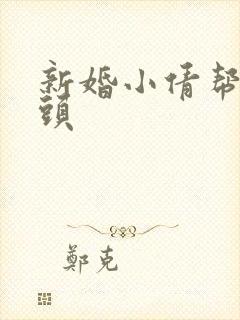 新婚小倩帮
頭
鄭克